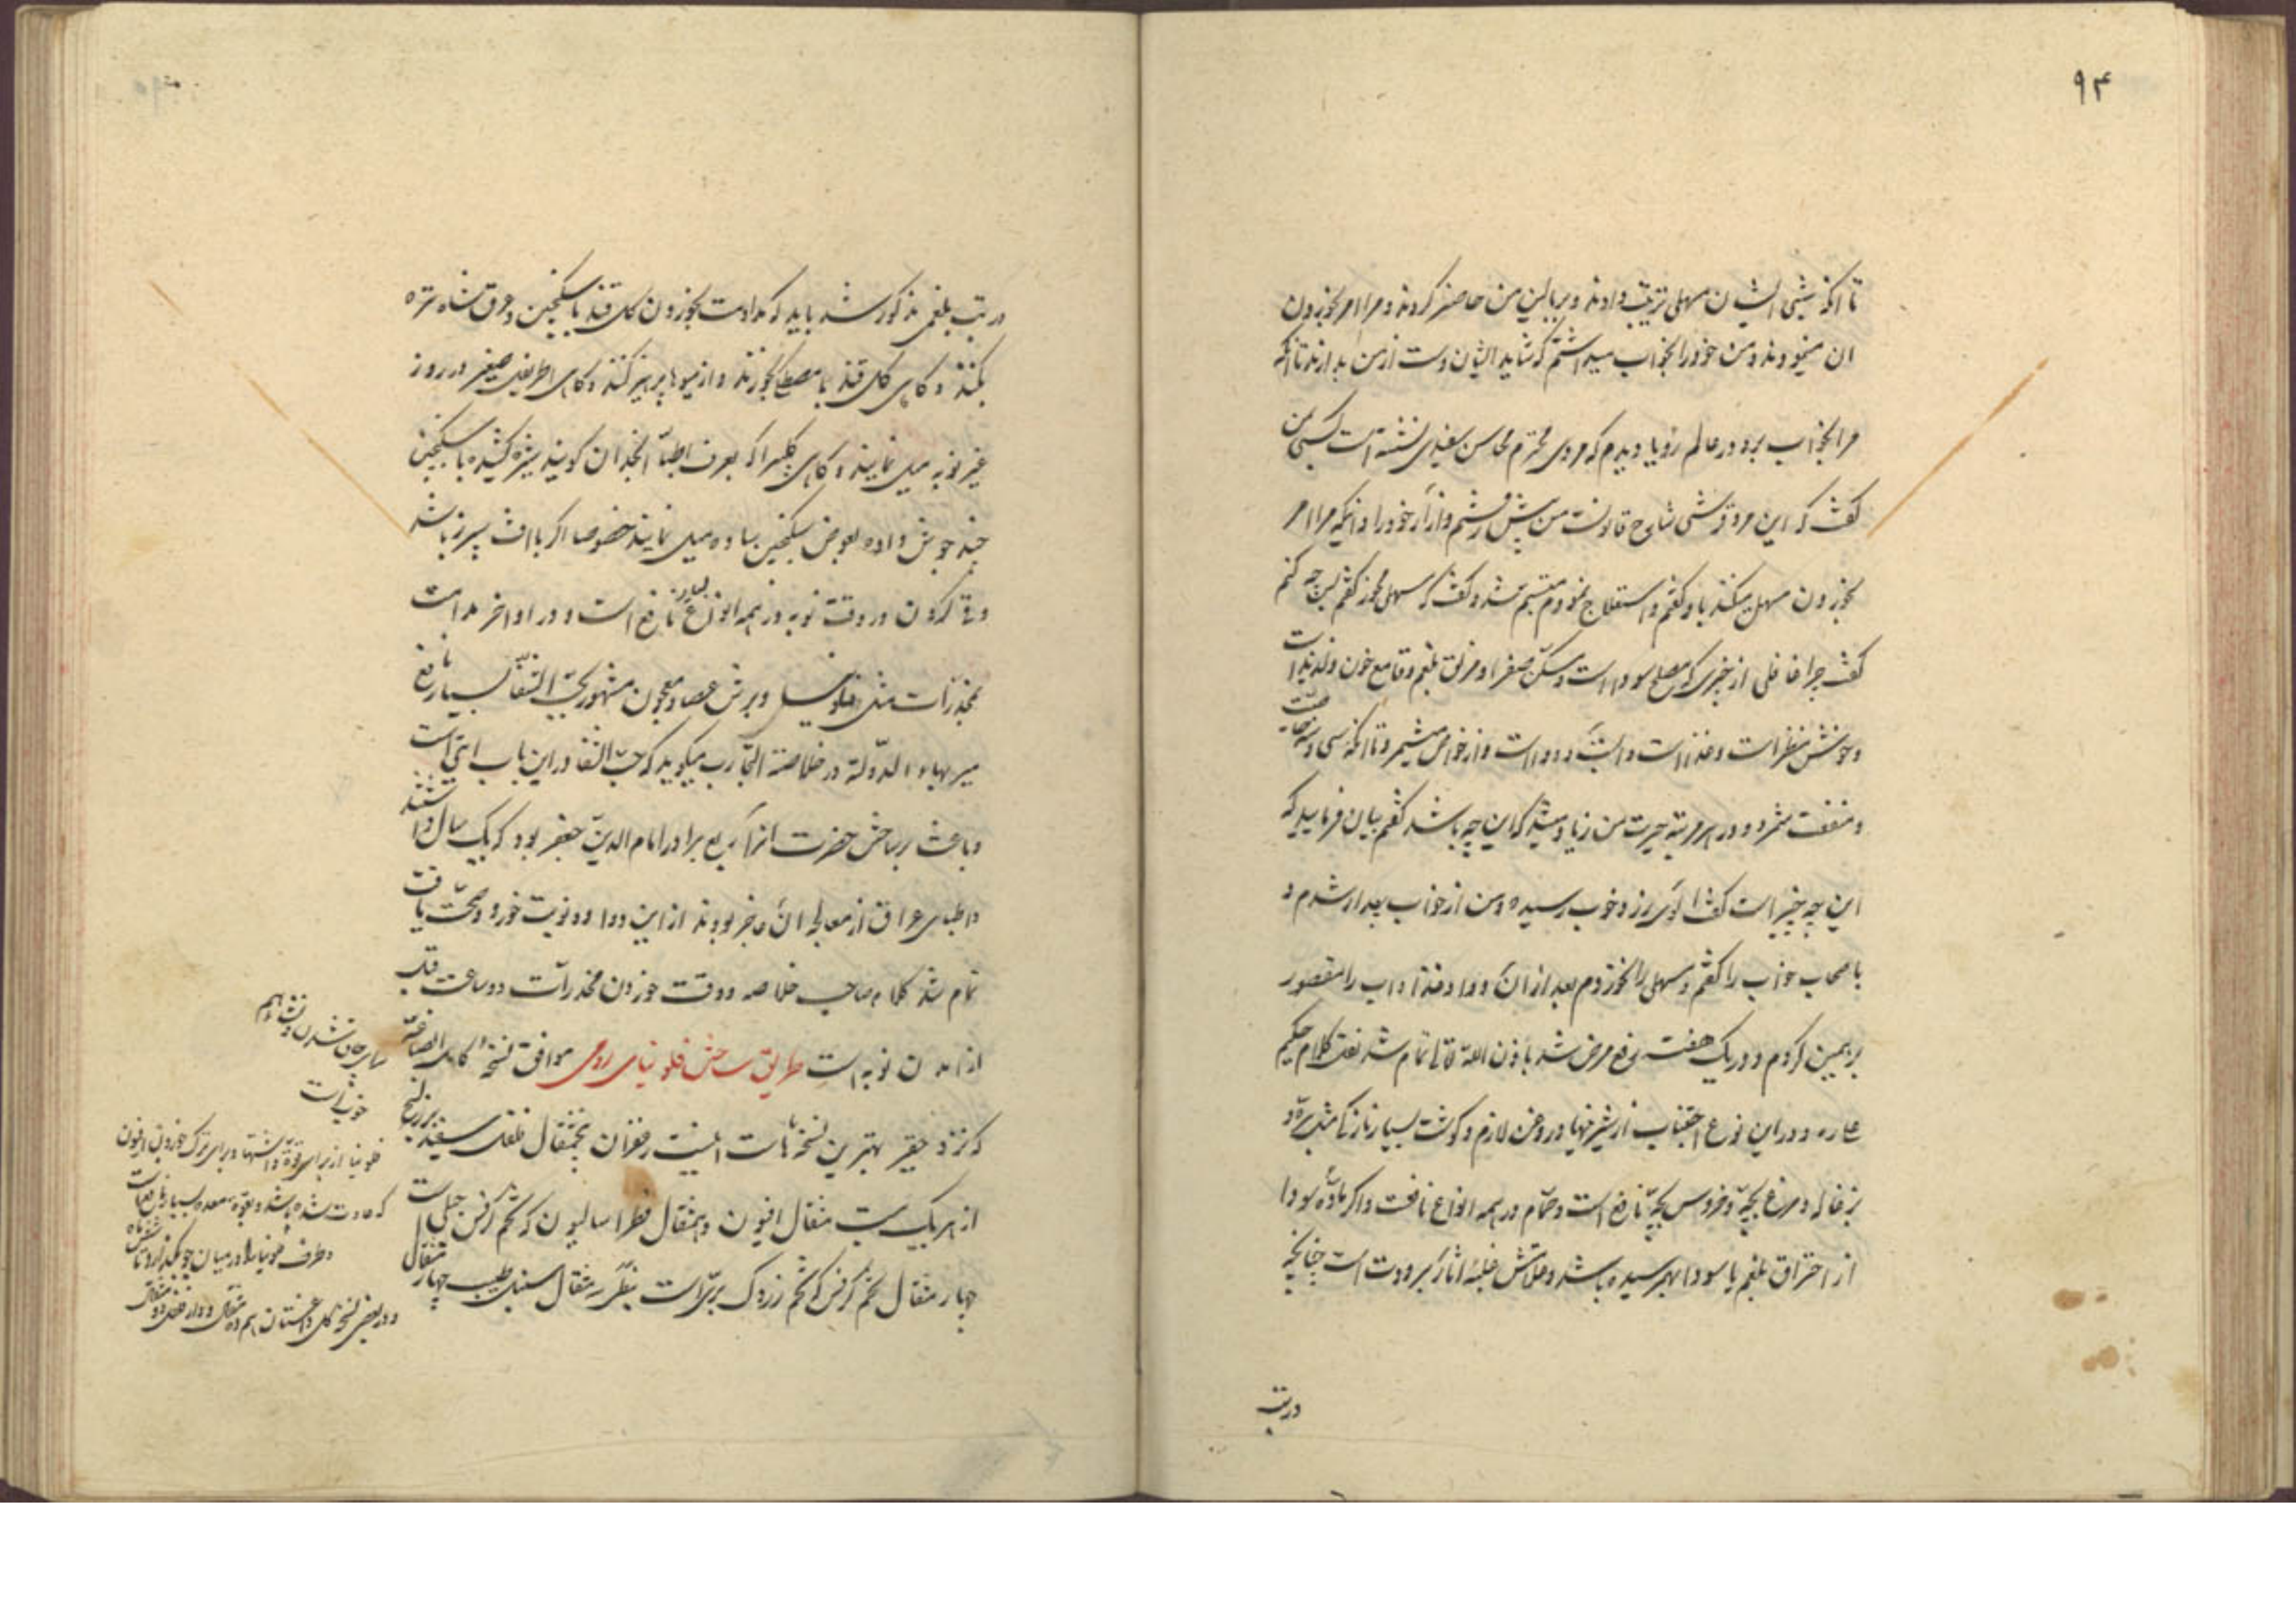 ۹۴
تا آنکه شبی ایشان مسهلی ترتیب دادند و ببالین من حاضر کردند و مرا امر بخوردن
ان مینمودند و من خود را بخواب میداشتم که شاید ایشان دست از من بدارند تا آنکه
مرا بخواب برد در عالم رؤیا دیدم که مردی محترم محاسن سفیدی نشسته است کسی بمن
گفت که این مرد قرشی شارح قانونست من پیش رفتم و آزار خود را و آنکه مرا امر
بخوردن مسهل میکنند باو گفتم و استعلاج نمودم متبسم شد و گفت که مسهل مخور گفتم پس چه کنم
گفت چرا غافلی از چیزی که مصلح سودا است و مسکن صفرا و مزلق بلغم و قامع خون و لذیذ است
و خوش منظر است و غذا است و دوا است و از خواص میشمرد تا آنکه سی و سه خاصیت
و منفعت شمرد و در هر مرتبه حیرت من زیاد میشد که این چه باشد گفتم بیان فرمایید که
این چه چیز است گفت آلوی زرد خوب رسیده و من از خواب بیدار شدم و
باصحاب خواب را گفتم و مسهل را نخوردم بعد از آن دوا و غذا و آب را مقصور
بر همین کردم و در یک هفته رفع مرض شد باذن الله تعالی تمام شد کلام حکیم
و در این نوع اجتناب از شیرینیها و روغن لازم و گوشت بسیار نازک مثل بره و
بزغاله و مرغ بچه و خروس بچه نافع است و حمام در همه انواع نافعست و اگر ماده سودا
از احتراق بلغم یا سودا بهم رسیده باشد و علامتش غلبه آثار برودت است چنانچه
در تب
در تب بلغمی مذکور شد باید که مداومت بخوردن گل قند با سکنجبین و عرق شاه تره
بکنند و گاهی گل قند با مصطکی بخورند و از میوها پرهیز کنند و گاهی اطریفل صغیر در روز
غیر نوبه میل نمایند و گاهی که بعرف اطبا انجدان گویند شیره کشیده با سکنجبین
چند جوش داده بعوض سکنجبین ساده میل نمایند خصوصا اگر با آفت سپرز باشد
و قی کردن در وقت نوبه در همه انواع بسیار نافع است و در اواخر مداومت
بمخدرات مثل فلونیا و برش و معجون مشهور بحب الشفا بسیار نافع
میر بهاء الدوله در خلاصة التجارب میگوید که حب الشفا در این باب آیتی است
و باعث ساختن حضرت برادرم امام الدین جعفر بود که یک سال داشتند
و اطبای عراق از معالجه آن عاجز بودند از این دوا دو نوبت خورد و صحت یافت
تمام شد کلام صاحب خلاصه و وقت خوردن مخدرات دو ساعت قبل
از آمدن نوبه است طریق ساختن فلونیای رومی موافق نسخه کامل الصناعة
که نزد حقیر بهترین نسخه هاست اینست زعفران پنجمثقال فلفل سفید بزر البنج
از هر یک بیست مثقال افیون ده مثقال فطراسالیون که تخم کرفس جبلی است
چهار مثقال تخم کرفس که تخم زردک بریست مثقال سنبل طیب چهار مثقال
خوب است
فلونیا از برای قوة و اشتها و برای ترک خوردن افیون
که عادت شده باشد و بقوة معده بسیار نافع است
و ظرف فلونیا را در میان جو بگذارند تا ششماه
و در بعضی نسخه گل داغستان هم ده مثقال و دار فلفل دو مثقال